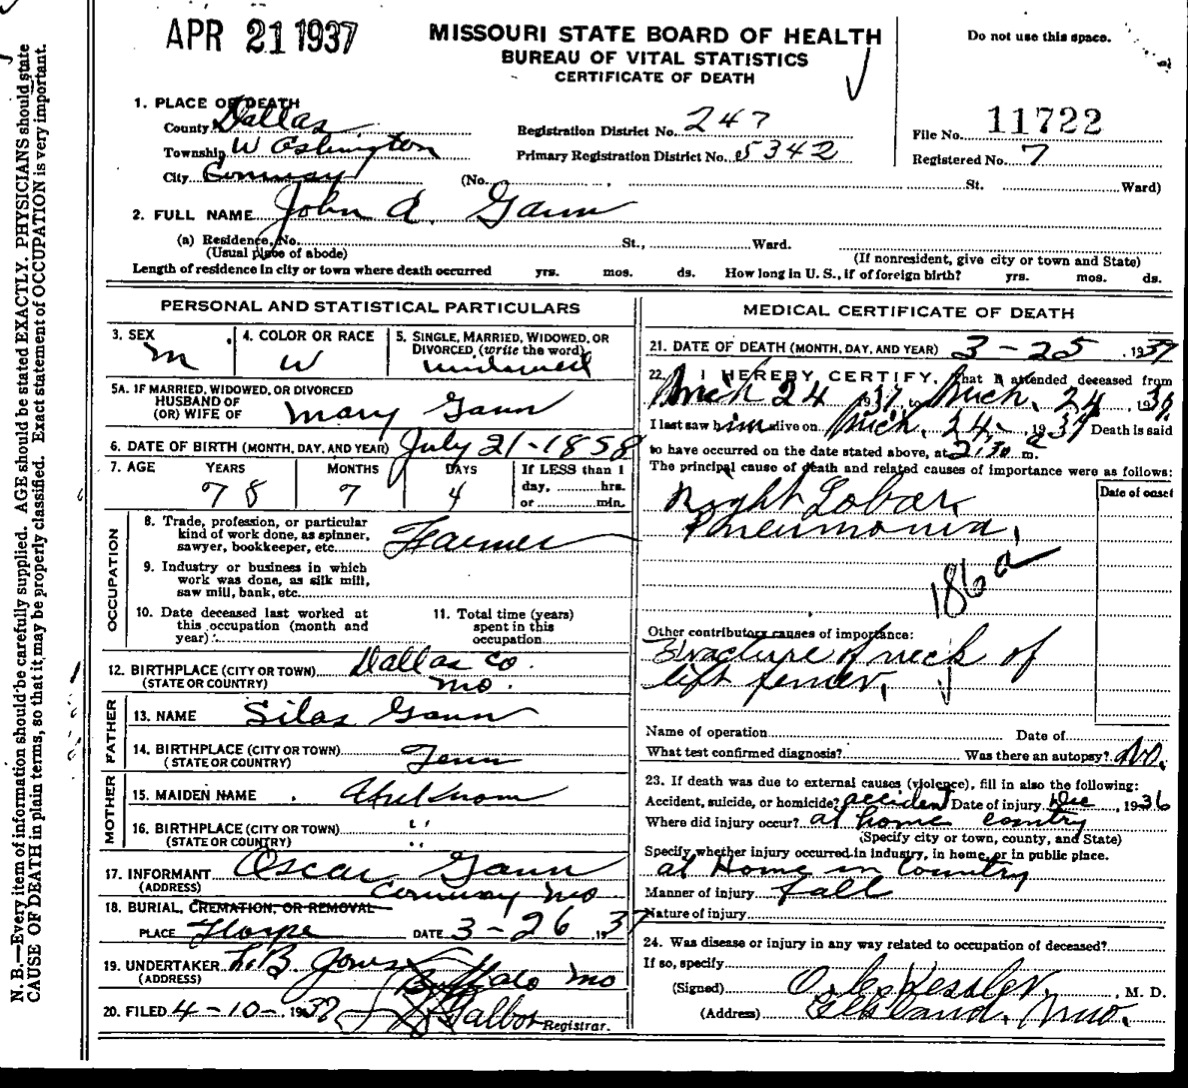 APR 21 1937
MISSOURI STATE BOARD OF HEALTH
BUREAU OF VITAL STATISTICS
CERTIFICATE OF DEATH
Do not use this space.
1. PLACE OF DEATH
County Dallas
Township Washington
City Conway (No. St. Ward)
Registration District No. 247
Primary Registration District No. 5342
File No. 11722
Registered No. 7
2. FULL NAME John A. Gann
(a) Residence, No. St., Ward.
(Usual place of abode) (If nonresident, give city or town and State)
Length of residence in city or town where death occurred yrs. mos. ds. How long in U. S., if of foreign birth? yrs. mos. ds.
PERSONAL AND STATISTICAL PARTICULARS
3. SEX m
4. COLOR OR RACE W
5. SINGLE, MARRIED, WIDOWED, OR DIVORCED (write the word)
5A. IF MARRIED, WIDOWED, OR DIVORCED
HUSBAND OF
(OR) WIFE OF Mary Gann
6. DATE OF BIRTH (MONTH, DAY, AND YEAR) July 21-1858
7. AGE YEARS MONTHS DAYS If LESS than 1
78 7 4 day, hrs.
or min.
OCCUPATION
8. Trade, profession, or particular
kind of work done, as spinner,
sawyer, bookkeeper, etc. Farmer
9. Industry or business in which
work was done, as silk mill,
saw mill, bank, etc.
10. Date deceased last worked at
this occupation (month and
year)
11. Total time (years)
spent in this
occupation
12. BIRTHPLACE (CITY OR TOWN) Dallas Co.
(STATE OR COUNTRY) Mo.
FATHER
13. NAME Silas Gann
14. BIRTHPLACE (CITY OR TOWN)
(STATE OR COUNTRY) Tenn
MOTHER
15. MAIDEN NAME
16. BIRTHPLACE (CITY OR TOWN) " "
(STATE OR COUNTRY)
17. INFORMANT Oscar Gann
(ADDRESS) Conway Mo
18. BURIAL, CREMATION, OR REMOVAL
PLACE DATE 3-26, 1937
19. UNDERTAKER L.B. Jones
(ADDRESS) Buffalo Mo
20. FILED 4-10-, 1937 Registrar.
MEDICAL CERTIFICATE OF DEATH
21. DATE OF DEATH (MONTH, DAY, AND YEAR) 3-25, 1937
22. I HEREBY CERTIFY, That I attended deceased from
Mch 24 1937, to Mch. 24, 1937
I last saw him alive on Mch. 24, 1937 Death is said
to have occurred on the date stated above, at 2:30 a m.
The principal cause of death and related causes of importance were as follows:
Date of onset
Right Lobar
Pneumonia,
Other contributory causes of importance:
Fracture of neck of
left femur,
Name of operation Date of
What test confirmed diagnosis? Was there an autopsy? No.
23. If death was due to external causes (violence), fill in also the following:
Accident, suicide, or homicide? accident Date of injury Dec, 1936
Where did injury occur? at home country
(Specify city or town, county, and State)
Specify whether injury occurred in industry, in home, or in public place.
at Home in Country
Manner of injury fall
Nature of injury
24. Was disease or injury in any way related to occupation of deceased?
If so, specify
(Signed) , M. D.
(Address) Mo.
N. B.—Every item of information should be carefully supplied. AGE should be stated EXACTLY. PHYSICIANS should state
CAUSE OF DEATH in plain terms, so that it may be properly classified. Exact statement of OCCUPATION is very important.